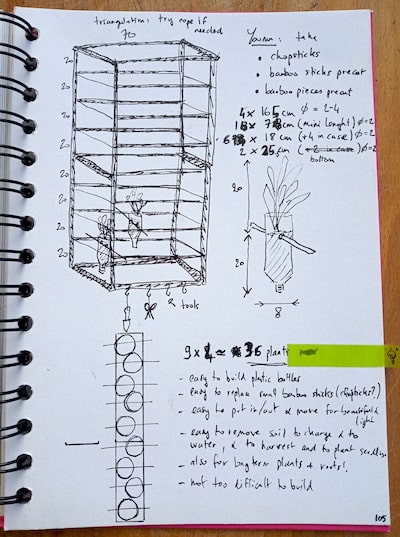 triangulation: try rope if
needed
70
20
20
20
20
20
20
tools
take
• chopsticks
• bamboo sticks precut
• bamboo pieces precut
4 x 165 cm ϕ = 2-4
cm (mini lenght) ϕ=2
x 18 cm (+4 in case) ϕ=2
2 x 25 cm (+2 in case) ϕ=2
bottom
20
20
8
9 x 4 ≈ 36 plants
- easy to build platic bottles
- easy to replace small bamboo sticks (chopsticks?)
- easy to put in/out & move for
light
- easy to remove soil to change & to
water, & to harvest and to plant seedlings
- also for longterm plants & roots!
- not too difficult to build
105